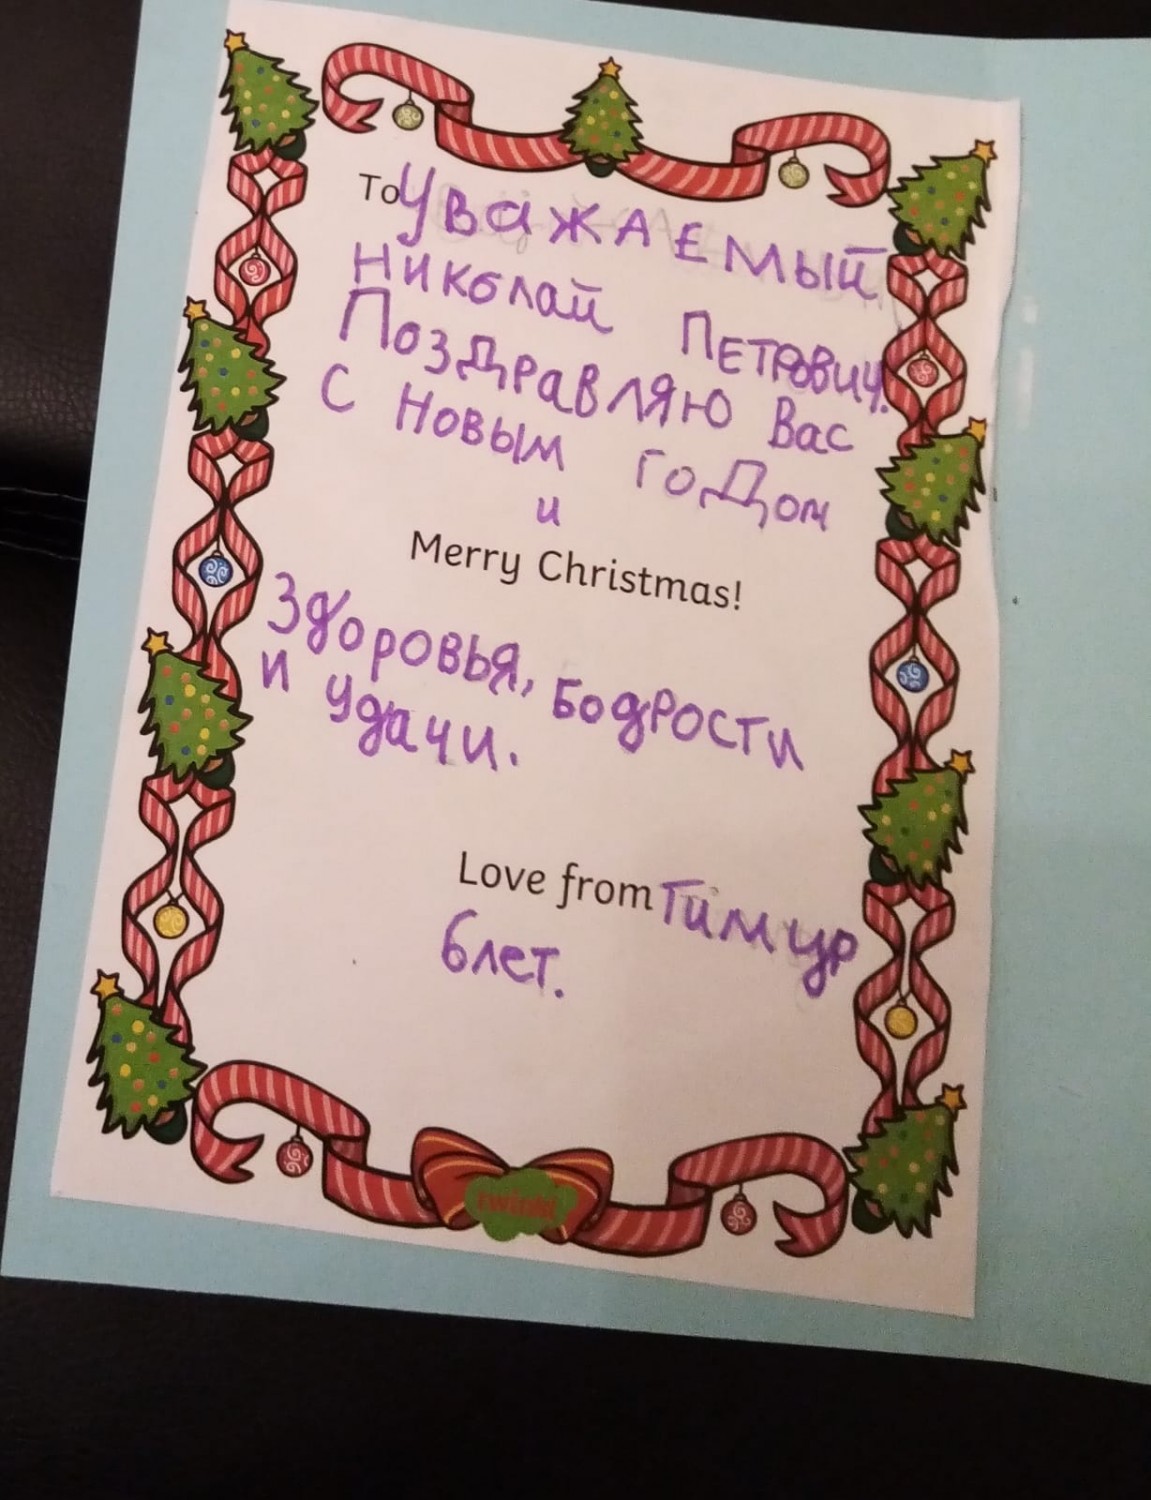 To Уважаемый
Николай Петрович.
Поздравляю Вас
С Новым годом
и
Merry Christmas!
Здоровья, бодрости
и удачи.
Love from Тимур
6 лет.
twinkl